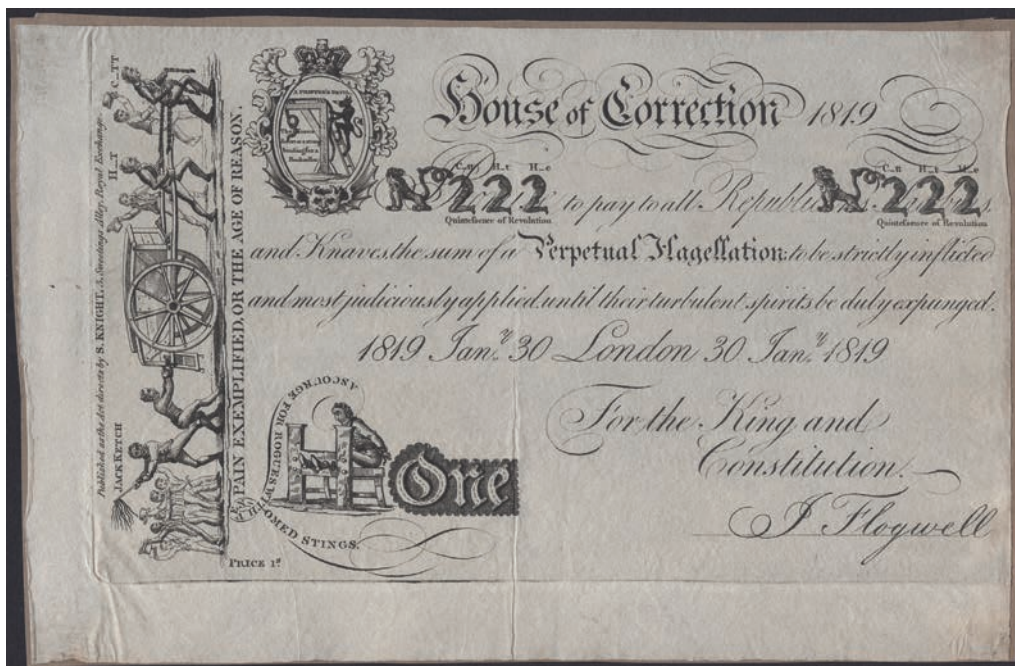 House of Correction 1819
C_tt H_t H_e
C_tt H_t H_e
No 222
No 222
Quintessence of Revolution
Quintessence of Revolution
to pay to all Republic
and Knaves, the sum of a Perpetual Flagellation: to be strictly inflicted
and most judiciously applied, until their turbulent spirits be duly expunged.
1819 Jany. 30 London 30 Jany. 1819
For the King and
Constitution.
J Flogwell
One
A SCOURGE FOR ROGUES WITH
OMED STINGS.
PRICE 1s
PAIN EXEMPLIFIED, OR THE AGE OF REASON.
Published as the Act directs by S. KNIGHT, 3, Sweetings Alley, Royal Exchange.
JACK KETCH
H_T
C_TT